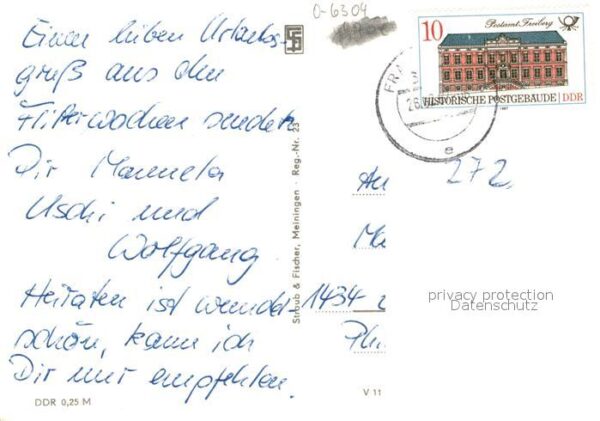 Einen lieben Urlaubs-
gruß aus den
Flitterwochen sendet
Dir Manuela
Uschi und
Wolfgang.
Heiraten ist wunder-
schön, kann ich
Dir nur empfehlen.
DDR 0,25 M
Straub & Fischer, Meiningen · Reg.-Nr. 23
V 11
0-6304
10
Postamt Freiberg
HISTORISCHE POSTGEBÄUDE DDR
FRA
e
272
An
Ma
1434
privacy protection
Datenschutz